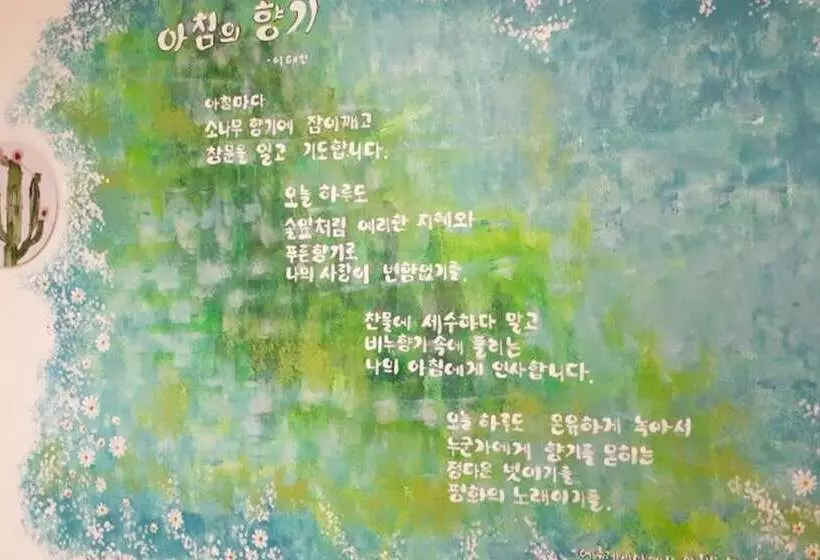 아침의 향기
-이해인
아침마다
소나무 향기에 잠이깨고
창문을 열고 기도합니다.
오늘 하루도
솔잎처럼 예리한 지혜와
푸른향기로
나의 사랑이 변함없기를.
찬물에 세수하다 말고
비누향기 속에 풀리는
나의 아침에게 인사합니다.
오늘 하루도 온유하게 녹아서
누군가에게 향기를 묻히는
정다운 벗이기를
평화의 노래이기를.